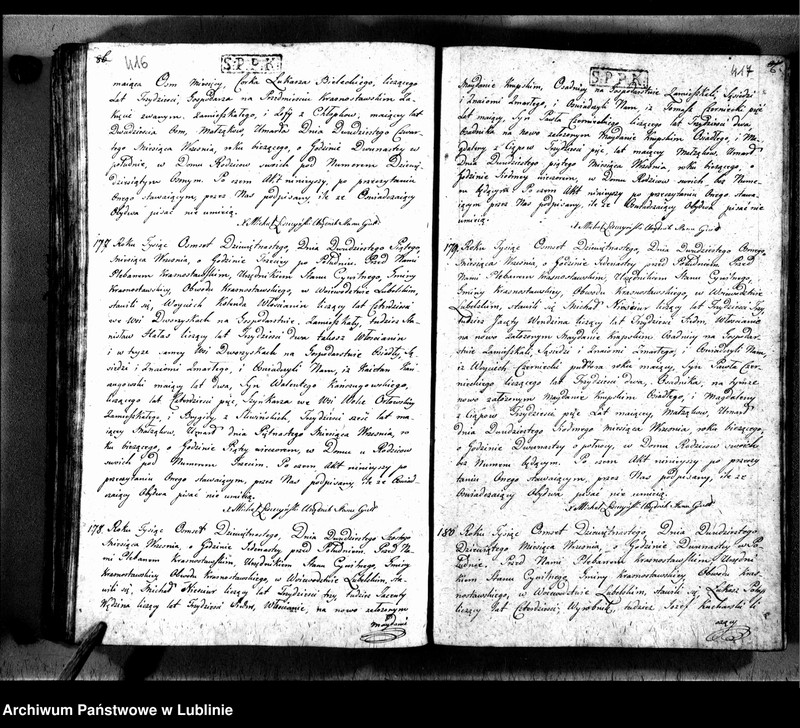 86
416
S.P.P.K.
maiąca Ośm Miesięcy, Córka Łukasza Bielackiego, liczącego
Lat Trzydzieści, Gospodarza na Przedmieściu Krasnostawskim Za-
zwanym, zamieszkałego, i Zofij z maiącey lat
Dwadzieścia Ośm, Małżąków, Umarła Dnia Dwudziestego Czwar-
tego Miesiąca Września, roku bieżącego, o Godzinie Dwunastey w
południe, w Domu Rodziców swoich pod Numerem Dziewię-
dziesiątym Ósmym. Po czem Akt ninieyszy, po przeczytaniu
Onego stawaiącym, przez Nas podpisany, ile że Oświadczaiący
Obydwa pisać nie umieią.
X Michał Urzędnik Stanu Cywil:
177 Roku Tysiąc Ośmset Dziewiętnastego, Dnia Dwudziestego Piątego
Miesiąca Września, o Godzinie Trzeciey po Południu. Przed Nami
Plebanem Krasnostawskim, Urzędnikiem Stanu Cywilnego, Gminy
Krasnostawskiey, Obwodu Krasnostawskiego, w Woiewództwie Lubelskim,
stawili się, Woyciech Kolenda Włościanin liczący lat Czterdzieści
we Wsi Dworzyskach na Gospodarstwie zamieszkały, tudzież Sta-
nisław Hałas liczący lat Trzydzieści dwa takoż Włościanin
i w teyże samey Wsi Dworzyskach na Gospodarstwie Osiadły, Są-
siedzi i Znaiomi zmarłego, i Oświadczyli Nam, iż Kaietan
maiący lat dwa, Syn Walentego
liczącego lat Czterdzieści pięć, Szynkarza we Wsi Woli
zamieszkałego, i Brygidy z Śliwińskich, Trzydzieści sześć lat ma-
iącey Małżąków, Umarł dnia Piętnastego Miesiąca Września, ro-
ku bieżącego, o Godzinie Piątey wieczorem, w Domu u Rodziców
swoich pod Numerem Trzecim. Po czem Akt ninieyszy po
przeczytaniu Onego stawaiącym, przez Nas podpisany, ile że Oświad-
czaiący Obydwa pisać nie umieią.
X Michał Urzędnik Stanu Cywil:
178 Roku Tysiąc Ośmset Dziewiętnastego, Dnia Dwudziestego Szóstego
Miesiąca Września, o Godzinie Jedenastey przed Południem. Przed Na-
mi Plebanem Krasnostawskim, Urzędnikiem Stanu Cywilnego, Gminy
Krasnostawskiey Obwodu Krasnostawskiego, w Woiewództwie Lubelskim, sta-
wili się, Michał liczący lat Trzydzieści trzy, tudzież Jacenty
Wędzina liczący lat Trzydzieści siedm, Włościanie, na nowo założonym
Maydanie
417
S.P.P.K.
Maydanie Krupskim, Osadnicy na Gospodarstwie Zamieszkali, Sąsiedzi
i Znaiomi zmarłego, i Oświadczyli Nam, iż Tomasz Czernecki pięć
Lat maiący, Syn Pawła Czerneckiego liczącego lat Trzydzieści dwa
Osadnika w nowo założonym Maydanie Krupskim Osiadłego, i Ma-
gdaleny z Trzydzieści pięć lat maiącey Małżąków, Umarł
Dnia Dwudziestego piątego Miesiąca Września, roku bieżącego, o
Godzinie Siódmey wieczorem, w Domu Rodziców swoich bez Nume-
ru będącym. Po czem Akt ninieyszy po przeczytaniu Onego stawa-
iącym przez Nas podpisany, ile że Oświadczaiący Obydwa pisać nie
umieią.
X Michał Urzędnik Stanu Cywil:
179 Roku Tysiąc Ośmset Dziewiętnastego, Dnia Dwudziestego Ósmego
Miesiąca Września, o Godzinie Jedenastey przed Południem. Przed
Nami Plebanem Krasnostawskim, Urzędnikiem Stanu Cywilnego,
Gminy Krasnostawskiey, Obwodu Krasnostawskiego, w Woiewództwie
Lubelskim, stawili się Michał liczący lat Trzydzieści trzy,
tudzież Jacenty Wendzina liczący lat Trzydzieści siedm, Włościanie
na nowo założonym Maydanie Krupskim Osadnicy na Gospodar-
stwie Zamieszkali, Sąsiedzi i Znaiomi Zmarłego, i Oświadczyli Nam,
iż Woyciech Czernecki półtora roku maiący, Syn Pawła Czer-
neckiego liczącego lat Trzydzieści dwa, Osadnika, na tymże
nowo założonym Maydanie Krupskim Osiadłego, i Magdaleny
z Trzydzieści pięć Lat maiącey, Małżąków, Umarł
dnia Dwudziestego Siódmego Miesiąca Września, roku bieżącego,
o Godzinie Dwunastey o północy, w Domu Rodziców swoich
bez Numeru będącym. Po czem Akt ninieyszy po przeczy-
taniu Onego stawaiącym, przez Nas podpisany, ile że
Oświadczaiący Obydwa pisać nie umieią.
X Michał Urzędnik Stanu Cywil:
180 Roku Tysiąc Ośmset Dziewiętnastego Dnia Dwudziestego
Dziewiątego Miesiąca Września, o Godzinie Dwunastey w Po-
łudnie. Przed Nami Plebanem Krasnostawskim, Urzędni-
kiem Stanu Cywilnego Gminy Krasnostawskiey Obwodu Kras-
nostawskiego, w Woiewództwie Lubelskim, stawili się, Łukasz
liczący lat Czterdzieści, Wyrobnik, tudzież Józef Kucharski li-
czący
Archiwum Państwowe w Lublinie